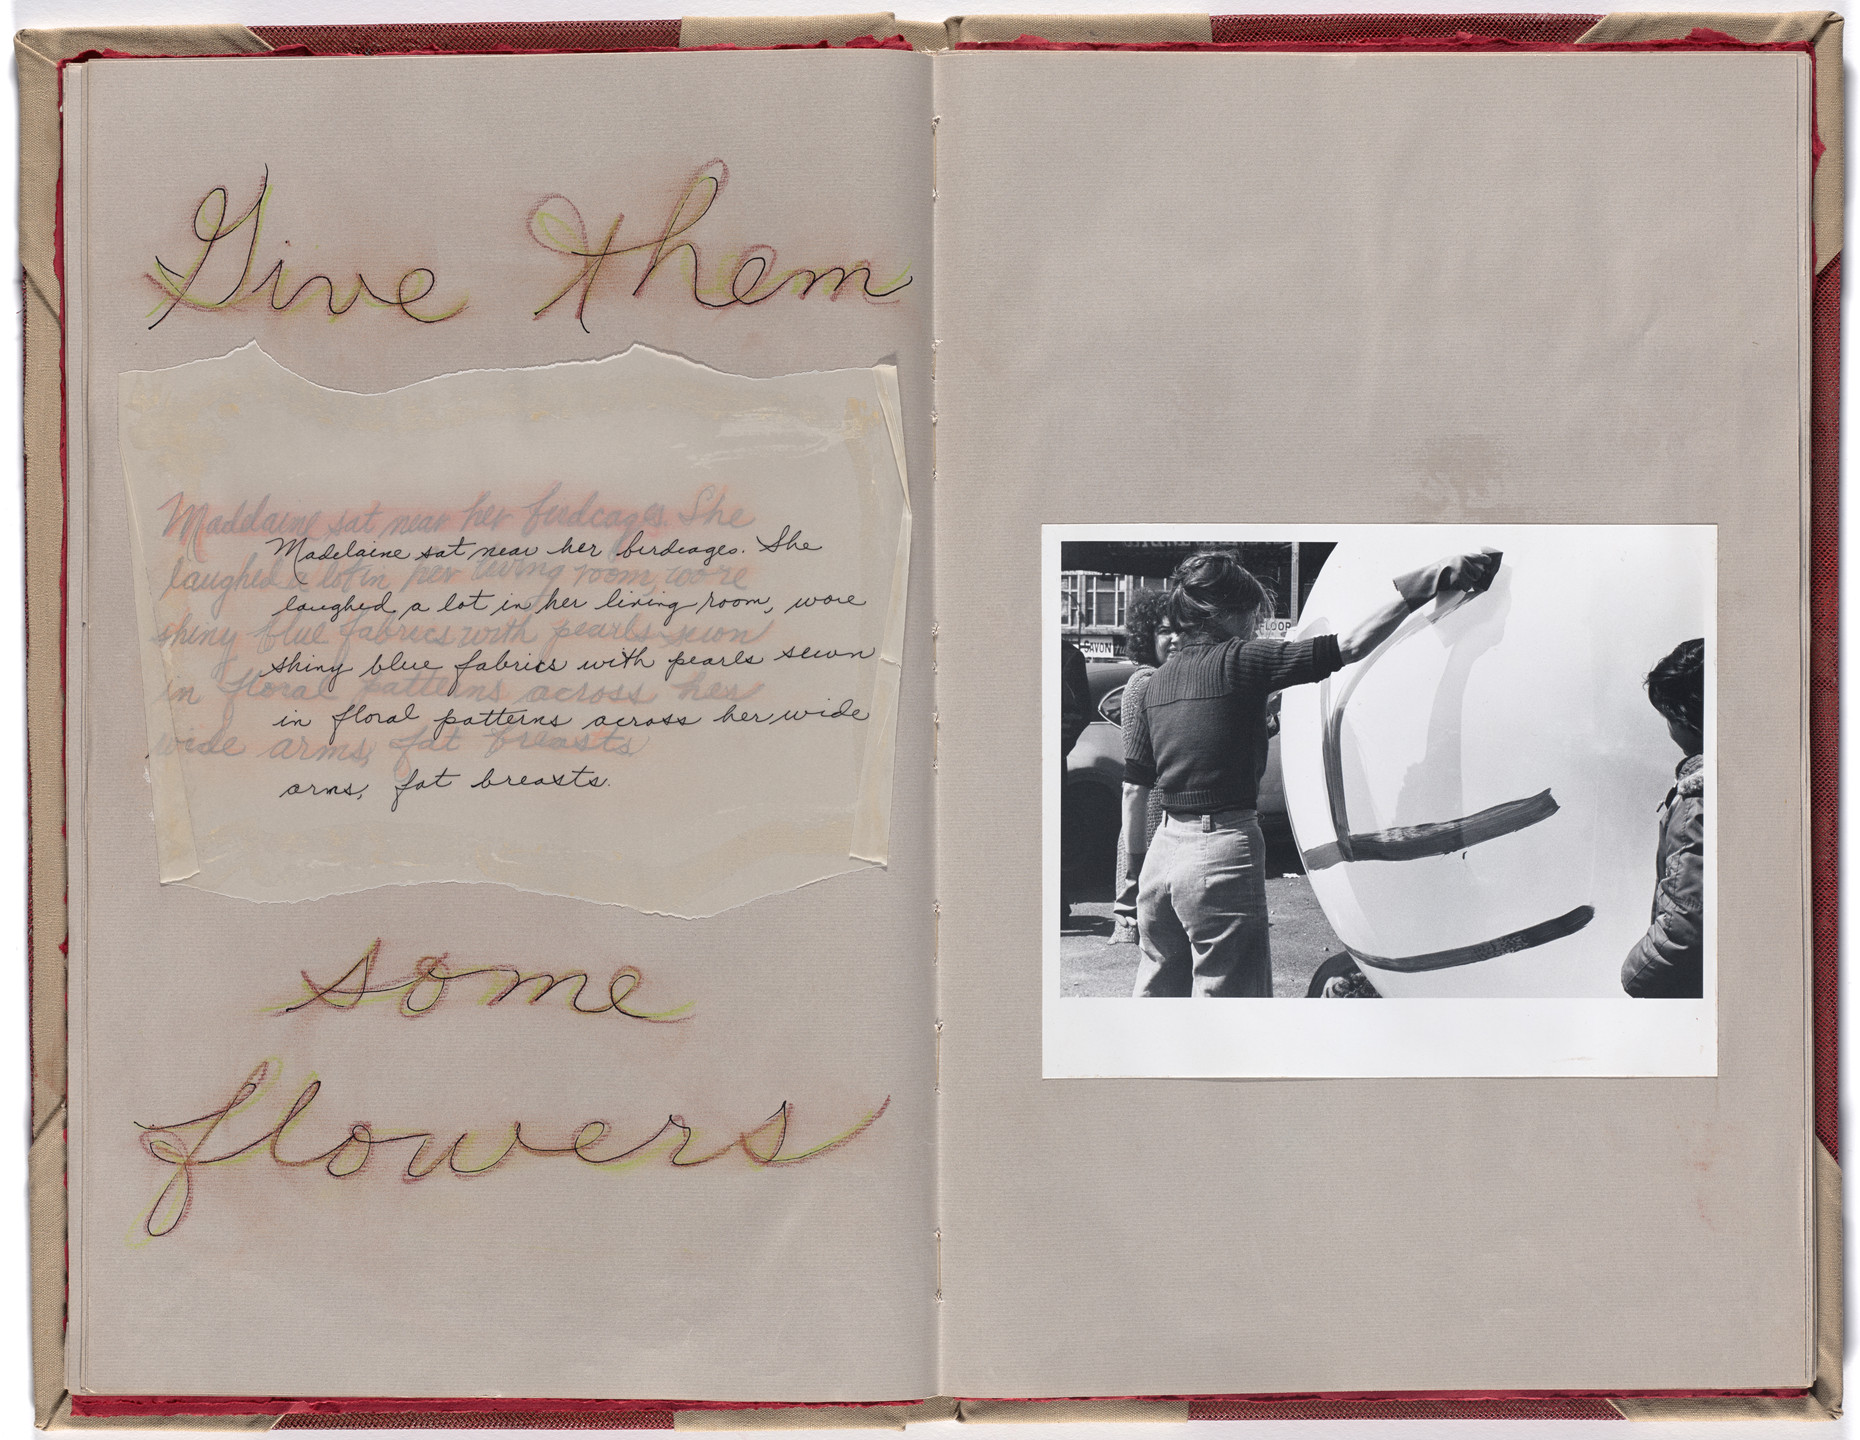 Give them
Madelaine sat near her birdcages. She
Madelaine sat near her birdcages. She
laughed a lot in her living room, wore
laughed a lot in her living room, wore
shiny blue fabrics with pearls sewn
shiny blue fabrics with pearls sewn
in floral patterns across her
in floral patterns across her wide
wide arms, fat breasts
arms, fat breasts.
some
flowers
FLOOR
SAVON